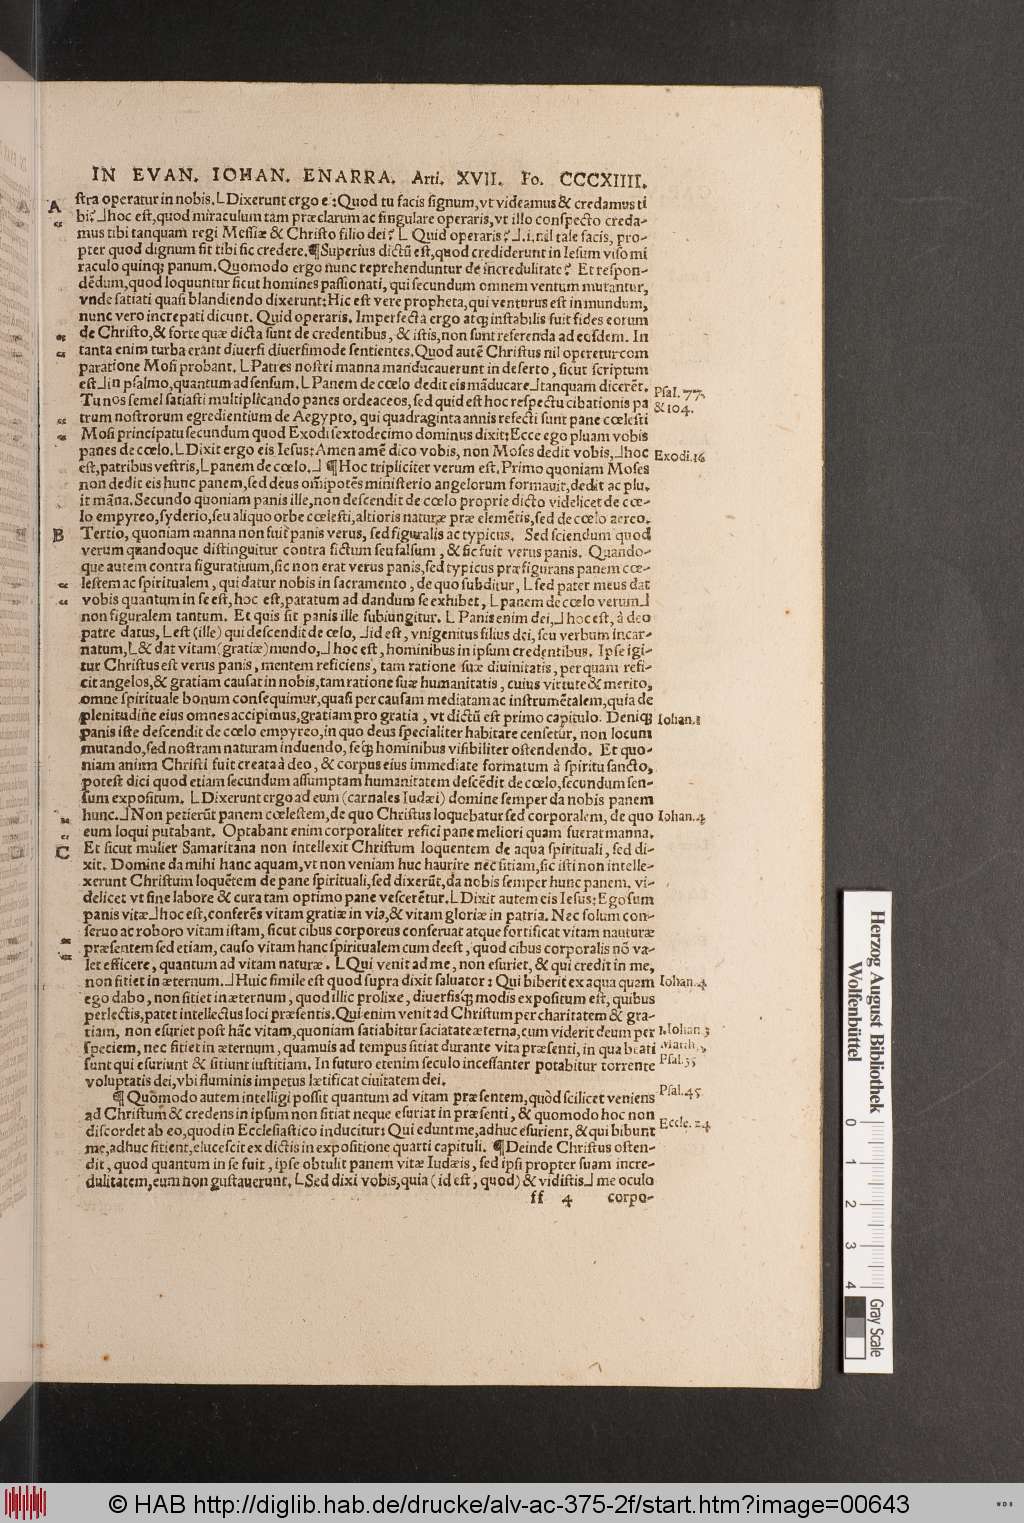 IN EVAN. IOHAN. ENARRA. Arti. XVII. Fo. CCCXIIII.
A
ſtra operatur in nobis. L Dixerunt ergo ei: Quod tu facis ſignum, vt videamus & credamus ti
bi? ⅃ hoc eſt, quod miraculum tam præclarum ac ſingulare operaris, vt illo conſpecto creda-
mus tibi tanquam regi Meſſiæ & Chriſto filio dei? L Quid operaris? ⅃ .i. nil tale facis, pro-
pter quod dignum ſit tibi ſic credere. ¶ Superius dictũ eſt, quod crediderunt in Ieſum viſo mi
raculo quinq; panum. Quomodo ergo nunc reprehenduntur de incredulitate? Et reſpon-
dẽdum, quod loquuntur ſicut homines paſſionati, qui ſecundum omnem ventum mutantur,
vnde ſatiati quaſi blandiendo dixerunt: Hic eſt vere propheta, qui venturus eſt in mundum,
nunc vero increpati dicunt. Quid operaris. Imperfecta ergo atq; inſtabilis fuit fides eorum
de Chriſto, & forte quæ dicta ſunt de credentibus, & iſtis, non ſunt referenda ad eoſdem. In
tanta enim turba erant diuerſi diuerſimode ſentientes. Quod autẽ Chriſtus nil operetur com
paratione Moſi probant. L Patres noſtri manna manducauerunt in deſerto, ſicut ſcriptum
eſt ⅃ in pſalmo, quantum ad ſenſum. L Panem de cœlo dedit eis mãducare ⅃ tanquam dicerẽt.
Tu nos ſemel ſatiaſti multiplicando panes ordeaceos, ſed quid eſt hoc reſpectu cibationis pa
trum noſtrorum egredientium de Aegypto, qui quadraginta annis refecti ſunt pane cœleſti
Moſi principatu ſecundum quod Exodi ſextodecimo dominus dixit: Ecce ego pluam vobis
panes de cœlo. L Dixit ergo eis Ieſus: Amen amẽ dico vobis, non Moſes dedit vobis, ⅃ hoc
eſt, patribus veſtris, L panem de cœlo. ⅃ ¶ Hoc tripliciter verum eſt. Primo quoniam Moſes
non dedit eis hunc panem, ſed deus om̃ipotẽs miniſterio angelorum formauit, dedit ac plu-
it mãna. Secundo quoniam panis ille, non deſcendit de cœlo proprie dicto videlicet de cœ-
lo empyreo, ſyderio, ſeu aliquo orbe cœleſti, altioris naturæ præ elemẽtis, ſed de cœlo aereo.
B
Tertio, quoniam manna non fuit panis verus, ſed figuralis ac typicus. Sed ſciendum quod
verum quandoque diſtinguitur contra fictum ſeu falſum, & ſic fuit verus panis. Quando-
que autem contra figuratiuum, ſic non erat verus panis, ſed typicus præfigurans panem cœ-
leſtem ac ſpiritualem, qui datur nobis in ſacramento, de quo ſubditur, L ſed pater meus dat
vobis quantum in ſe eſt, hoc eſt, paratum ad dandum ſe exhibet, L panem de cœlo verum ⅃
non figuralem tantum. Et quis ſit panis ille ſubiungitur. L Panis enim dei, ⅃ hoc eſt, à deo
patre datus, L eſt (ille) qui deſcendit de cœlo, ⅃ id eſt, vnigenitus filius dei, ſeu verbum incar-
natum, L & dat vitam (gratiæ) mundo, ⅃ hoc eſt, hominibus in ipſum credentibus. Ipſe igi-
tur Chriſtus eſt verus panis, mentem reficiens, tam ratione ſuæ diuinitatis, per quam refi-
cit angelos, & gratiam cauſat in nobis, tam ratione ſuæ humanitatis, cuius virtute & merito,
omne ſpirituale bonum conſequimur, quaſi per cauſam mediatam ac inſtrumẽtalem, quia de
plenitudine eius omnes accipimus, gratiam pro gratia, vt dictũ eſt primo capitulo. Deniq;
panis iſte deſcendit de cœlo empyreo, in quo deus ſpecialiter habitare cenſetur, non locum
mutando, ſed noſtram naturam induendo, ſeq; hominibus viſibiliter oſtendendo. Et quo-
niam anima Chriſti fuit creata à deo, & corpus eius immediate formatum à ſpiritu ſancto,
poteſt dici quod etiam ſecundum aſſumptam humanitatem deſcẽdit de cœlo, ſecundum ſen-
ſum expoſitum. L Dixerunt ergo ad eum (carnales Iudæi) domine ſemper da nobis panem
hunc. ⅃ Non petierũt panem cœleſtem, de quo Chriſtus loquebatur ſed corporalem, de quo
eum loqui putabant. Optabant enim corporaliter refici pane meliori quam fuerat manna.
C
Et ſicut mulier Samaritana non intellexit Chriſtum loquentem de aqua ſpirituali, ſed di-
xit. Domine da mihi hanc aquam, vt non veniam huc haurire nec ſitiam, ſic iſti non intelle-
xerunt Chriſtum loquẽtem de pane ſpirituali, ſed dixerũt, da nobis ſemper hunc panem. vi-
delicet vt ſine labore & cura tam optimo pane veſcerẽtur. L Dixit autem eis Ieſus: Ego ſum
panis vitæ ⅃ hoc eſt, conferẽs vitam gratiæ in via, & vitam gloriæ in patria. Nec ſolum con-
ſeruo ac roboro vitam iſtam, ſicut cibus corporeus conſeruat atque fortificat vitam nauturæ
præſentem ſed etiam, cauſo vitam hanc ſpiritualem cum deeſt, quod cibus corporalis nõ va-
let efficere, quantum ad vitam naturæ. L Qui venit ad me, non eſuriet, & qui credit in me,
non ſitiet in æternum. ⅃ Huic ſimile eſt quod ſupra dixit ſaluator: Qui biberit ex aqua quam
ego dabo, non ſitiet in æternum, quod illic prolixe, diuerſiſq; modis expoſitum eſt, quibus
perlectis, patet intellectus loci præſentis. Qui enim venit ad Chriſtum per charitatem & gra-
tiam, non eſuriet poſt hãc vitam, quoniam ſatiabitur ſaciatate æterna, cum viderit deum per
ſpeciem, nec ſitiet in æternum, quamuis ad tempus ſitiat durante vita præſenti, in qua beati
ſunt qui eſuriunt & ſitiunt iuſtitiam. In futuro etenim ſeculo inceſſanter potabitur torrente
voluptatis dei, vbi fluminis impetus lætificat ciuitatem dei.
¶ Quõmodo autem intelligi poſſit quantum ad vitam præſentem, quòd ſcilicet veniens
ad Chriſtum & credens in ipſum non ſitiat neque eſuriat in præſenti, & quomodo hoc non
diſcordet ab eo, quod in Eccleſiaſtico inducitur: Qui edunt me, adhuc eſurient, & qui bibunt
me, adhuc ſitient, eluceſcit ex dictis in expoſitione quarti capituli. ¶ Deinde Chriſtus oſten-
dit, quod quantum in ſe fuit, ipſe obtulit panem vitæ Iudæis, ſed ipſi propter ſuam incre-
dulitatem, eum non guſtauerunt. L Sed dixi vobis, quia (id eſt, quod) & vidiſtis ⅃ me oculo
ff 4 corpo-
Pſal. 77.
& 104.
Exodi. 16
Iohan. 1
Iohan. 4
Iohan. 4
1. Iohan. 3
Matth. 5
Pſal. 35
Pſal. 45
Eccle. 24
Herzog August Bibliothek
Wolfenbüttel
0 1 2 3 4
Gray Scale
© HAB http://diglib.hab.de/drucke/alv-ac-375-2f/start.htm?image=00643